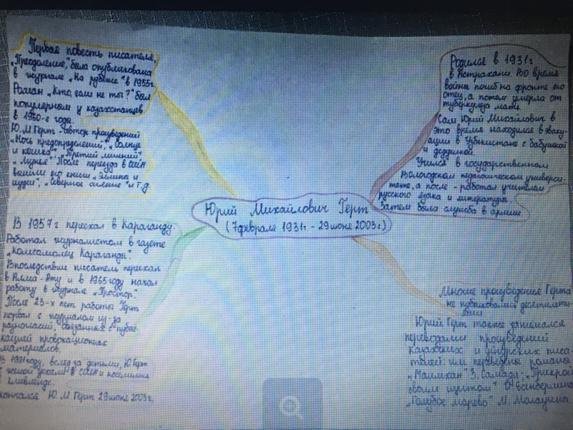 Первая повесть писателя,
"Преодоление", была опубликована
в журнале "На рубеже" в 1955г.
Роман "Кто, если не ты?" был
популярным у казахстанцев
в 1960-е годы.
Ю.М Герт - автор произведений
"Ночь предопределений", "Солнце
и кошка", "Третий лишний"
После переезда в США
вышли его книги "Эллины и
иудеи", "Северное сияние" и т.д.
Родился в 1931г
в Астрахани. Во время
войны погиб на фронте его
отец, а потом умерла от
туберкулёза мать.
Сам Юрий Михайлович в
это время находился в эваку-
ации в Узбекистане с бабушкой
и дедушкой.
Учился в государственном
Вологодском педагогическом универси-
тете, а после - работал учителем
русского языка и литературы.
Затем была служба в армии
Юрий Михайлович Герт
(7 февраля 1931г. - 29 июня 2003г.)
В 1957г переехал в Караганду.
Работал журналистом в газете
"Комсомолец Караганды".
Впоследствии писатель переехал
в Алма-Ату и в 1965 году начал
работу в журнале "Простор".
После 23-х лет работы Герт
порвал с журналом из-за
разногласий, связанных с публи-
кацией провокационных
материалов.
В году, вслед за детьми, Ю.Герт
с женой уехали в США и поселились
в Кливленде.
Скончался Ю.М Герт 29 июня 2003г.
Многие произведения Герта
не публиковались десятилети-
ями
Юрий Герт также занимался
переводами произведений
казахских и уйгурских писа-
телей: им переведён романы
"Маимхан" З. Самади,
своим щитом"
"Голубое марево" М.